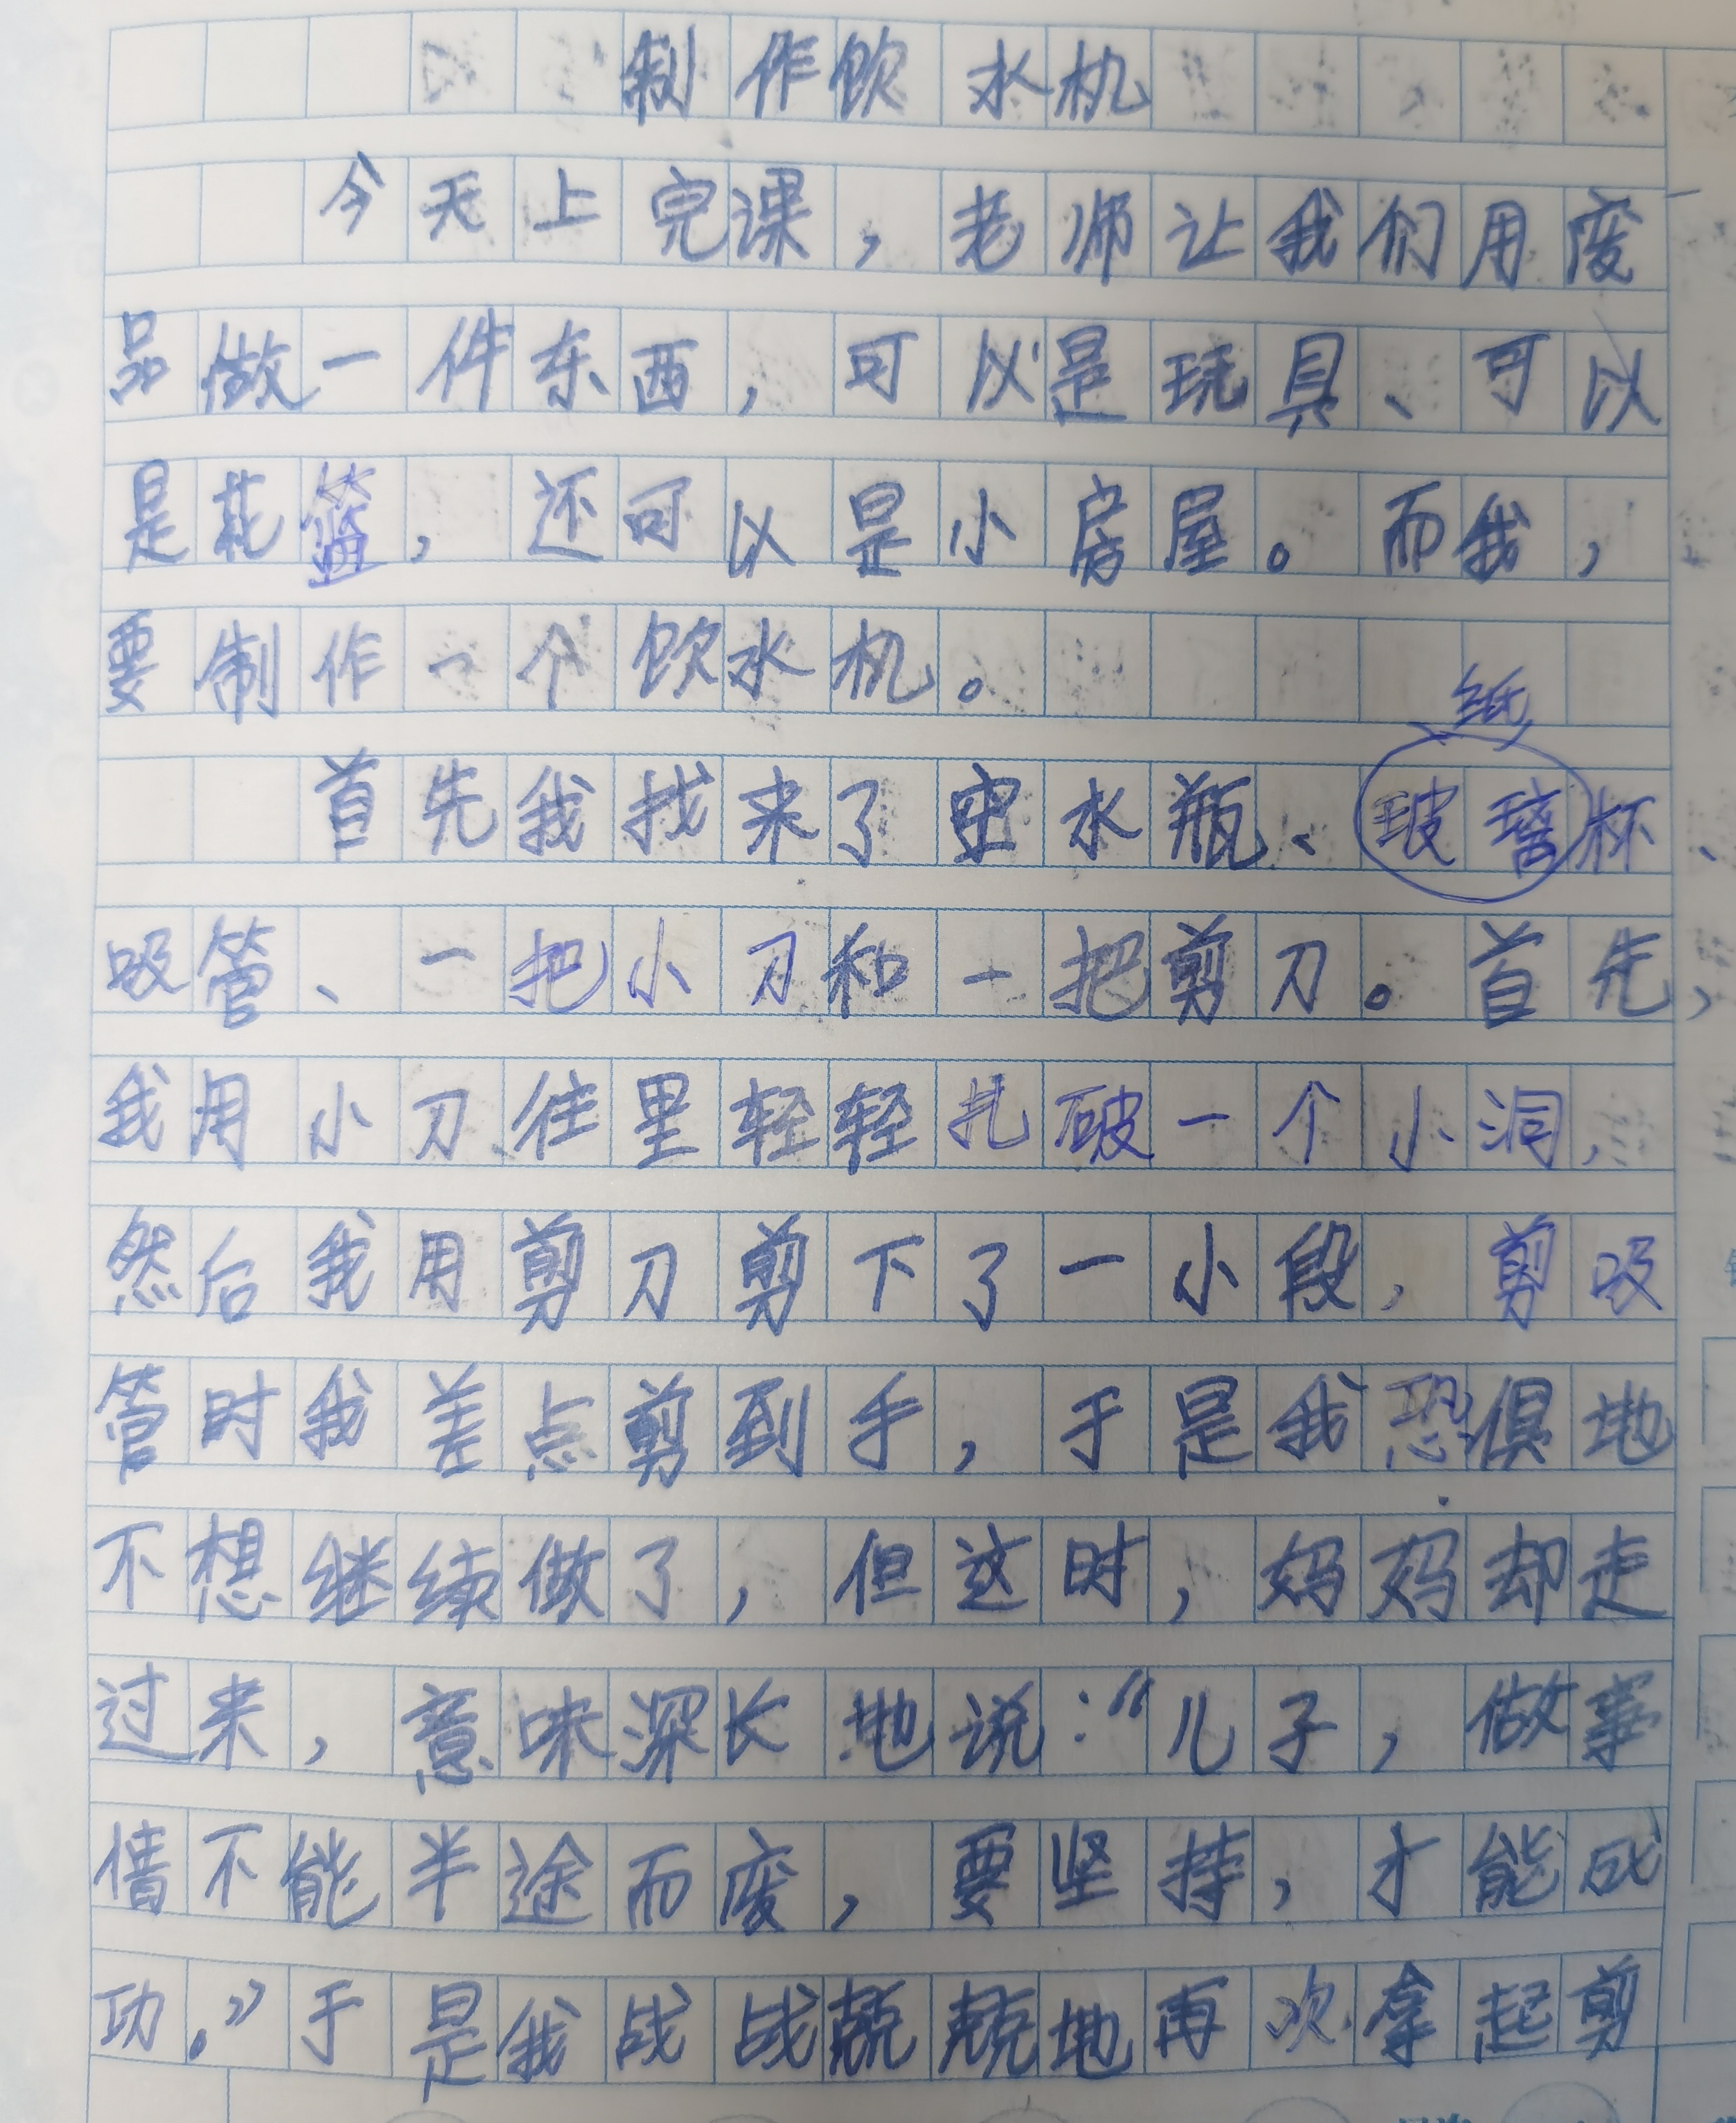 制作饮水机
今天上完课，老师让我们用废
品做一件东西，可以是玩具、可以
是花篮，还可以是小房屋。而我，
要制作一个饮水机。
纸
首先我找来了空水瓶、玻璃杯、
吸管、一把小刀和一把剪刀。首先，
我用小刀往里轻轻扎破一个小洞，
然后我用剪刀剪下了一小段，剪吸
管时我差点剪到手，于是我恐惧地
不想继续做了，但这时，妈妈却走
过来，意味深长地说：“儿子，做事
情不能半途而废，要坚持，才能成
功。”于是我战战兢兢地再次拿起剪